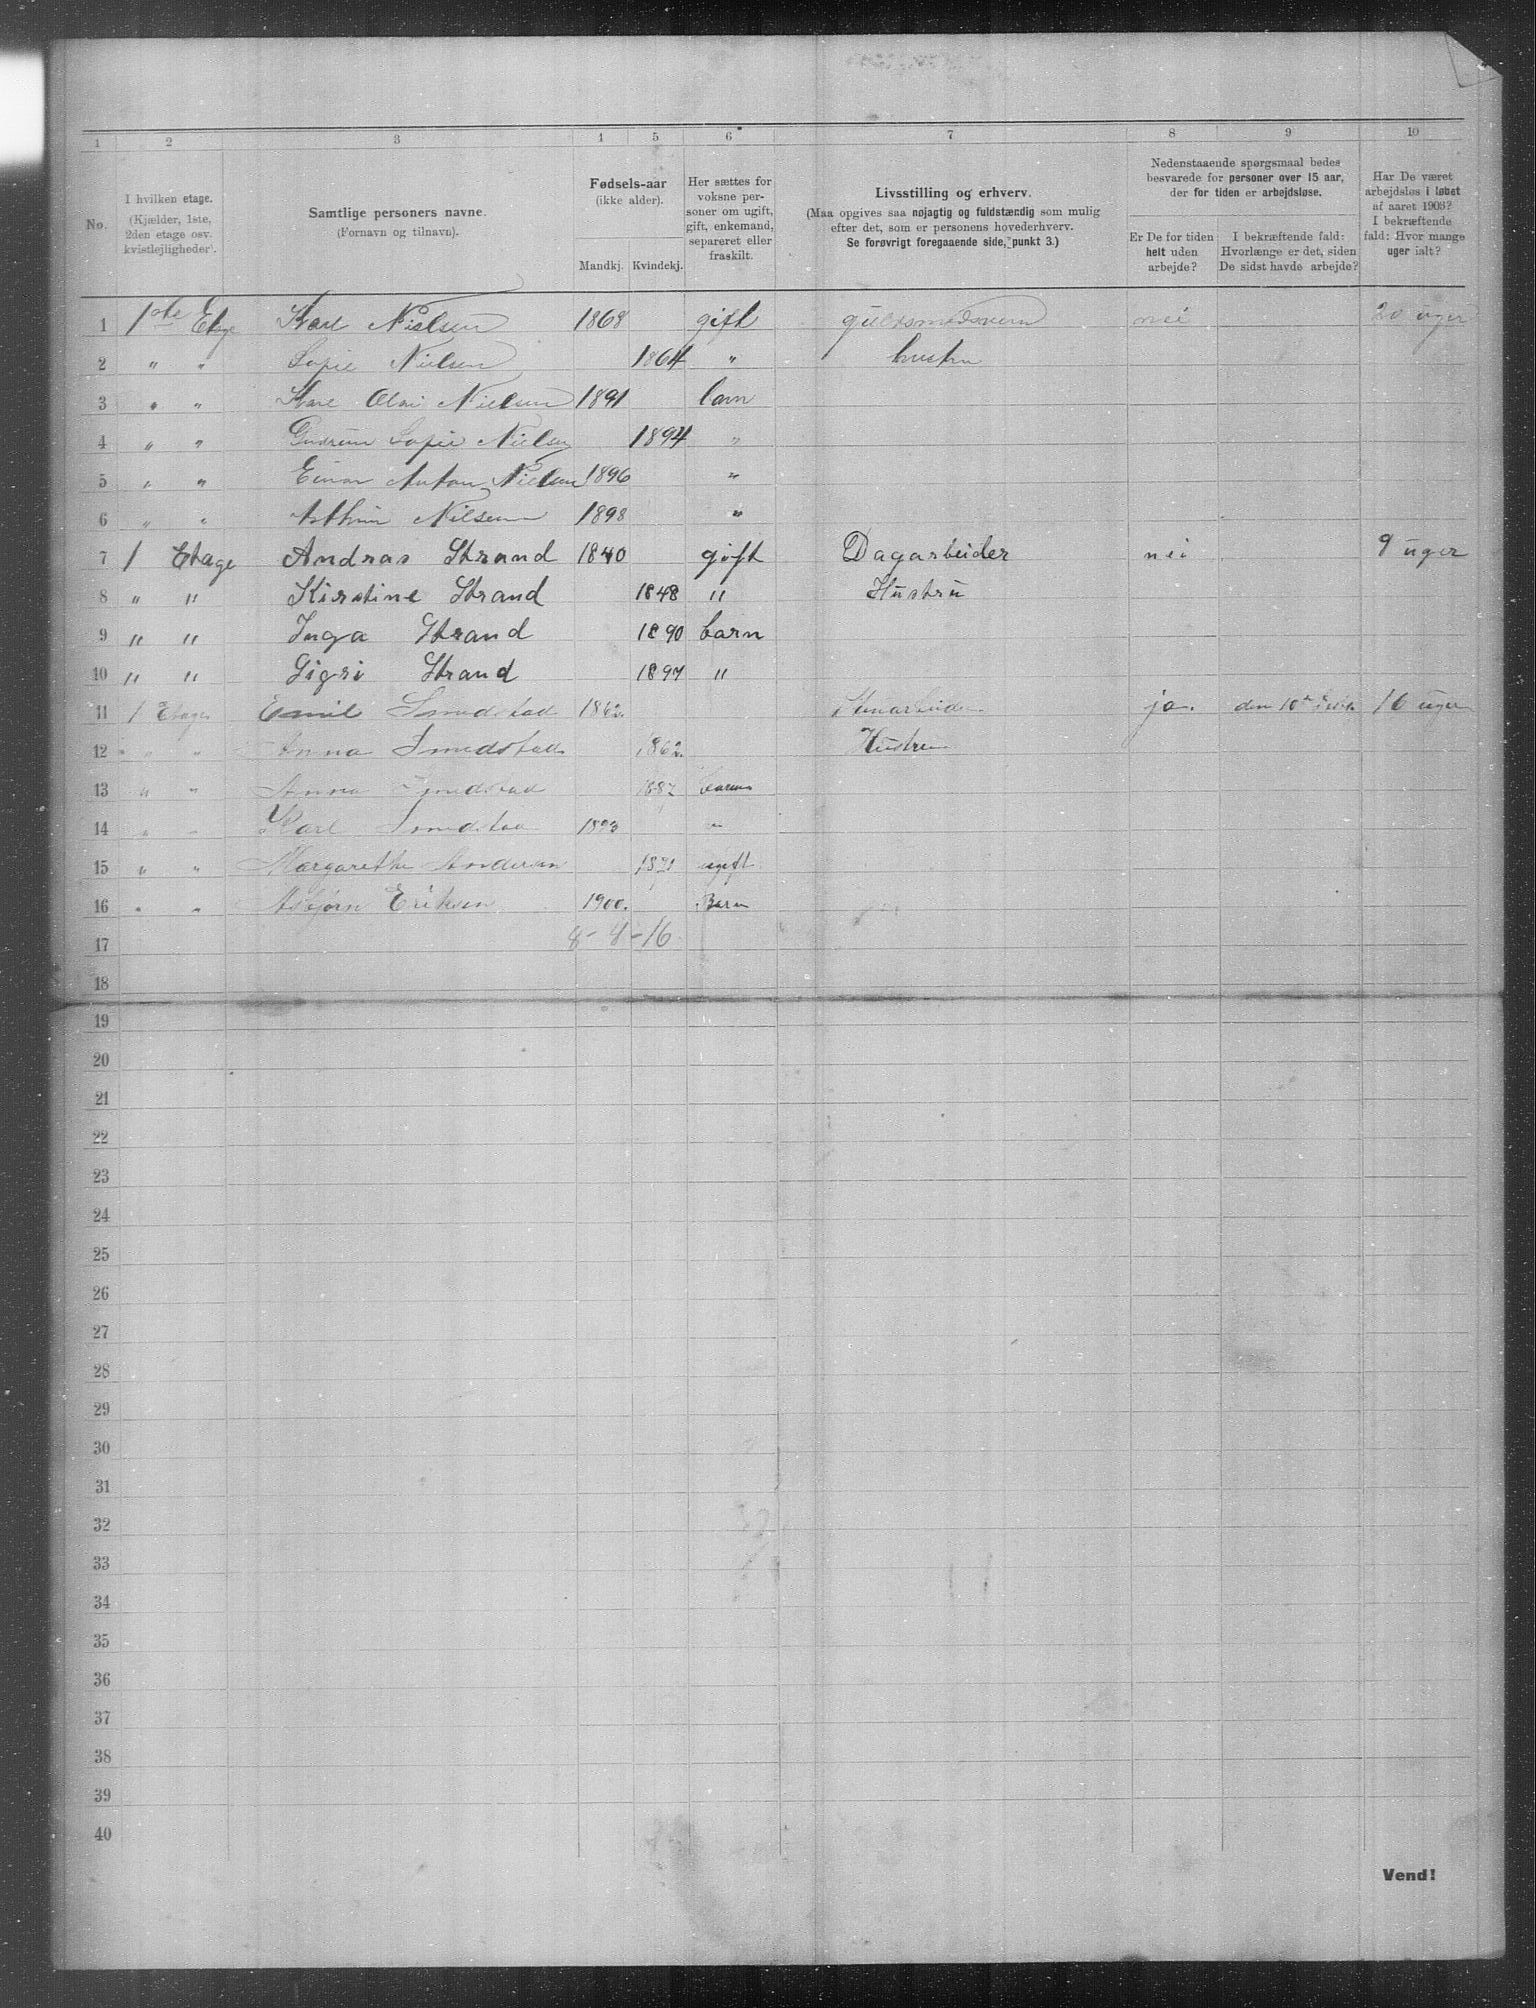 1 2 3 4 5 6 7 8 9 10
No.
I hvilken etage.
(Kjælder, 1ste,
2den etage osv.
kvistlejligheder).
Samtlige personers navne.
(Fornavn og tilnavn).
Fødsels-aar
(ikke alder).
Mandkj. Kvindekj.
Her sættes for
voksne per-
soner om ugift,
gift, enkemand,
separeret eller
fraskilt.
Livsstilling og erhverv.
(Maa opgives saa nøjagtig og fuldstændig som mulig
efter det, som er personens hovederhverv.
Se forøvrigt foregaaende side, punkt 3.)
Nedenstaaende spørgsmaal bedes
besvarede for personer over 15 aar,
der for tiden er arbejdsløse.
Er De for tiden
helt uden
arbejde?
I bekræftende fald:
Hvorlænge er det, siden
De sidst havde arbejde?
Har De været
arbejdsløs i løbet
af aaret 1903?
I bekræftende
fald: Hvor mange
uger ialt?
1 1ste Etage Karl Nielsen 1868 gift nei 20 uger
2 " " Sofie Nielsen 1864 " hustru
3 " " Karl Olai Nielsen 1891 barn
4 " " Gudrun Sofie Nielsen 1894 "
5 " " Einar Anton Nielsen 1896 "
6 " " Arthur Nilsen 1898 "
7 1 Etage Andras Strand 1840 gift Dagarbeider nei 9 uger
8 " " Kirstine Strand 1848 " Hustru
9 " " Inga Strand 1890 barn
10 " " Sigri Strand 1897 "
11 1 Etage Emil Smedstad 1862 Stenarbeider ja. den 10de 16 uger
12 " " Anna Smedstad 1862 Hustru
13 " " Anna Smedstad 1887 barn
14 " " Karl Smedstad 1893 "
15 " " Margarethe Andersen 1871 ugift
16 " " Asbjørn Eriksen 1900. Barn
17 8-4-16
18
19
20
21
22
23
24
25
26
27
28
29
30
31
32
33
34
35
36
37
38
39
40
Vend!